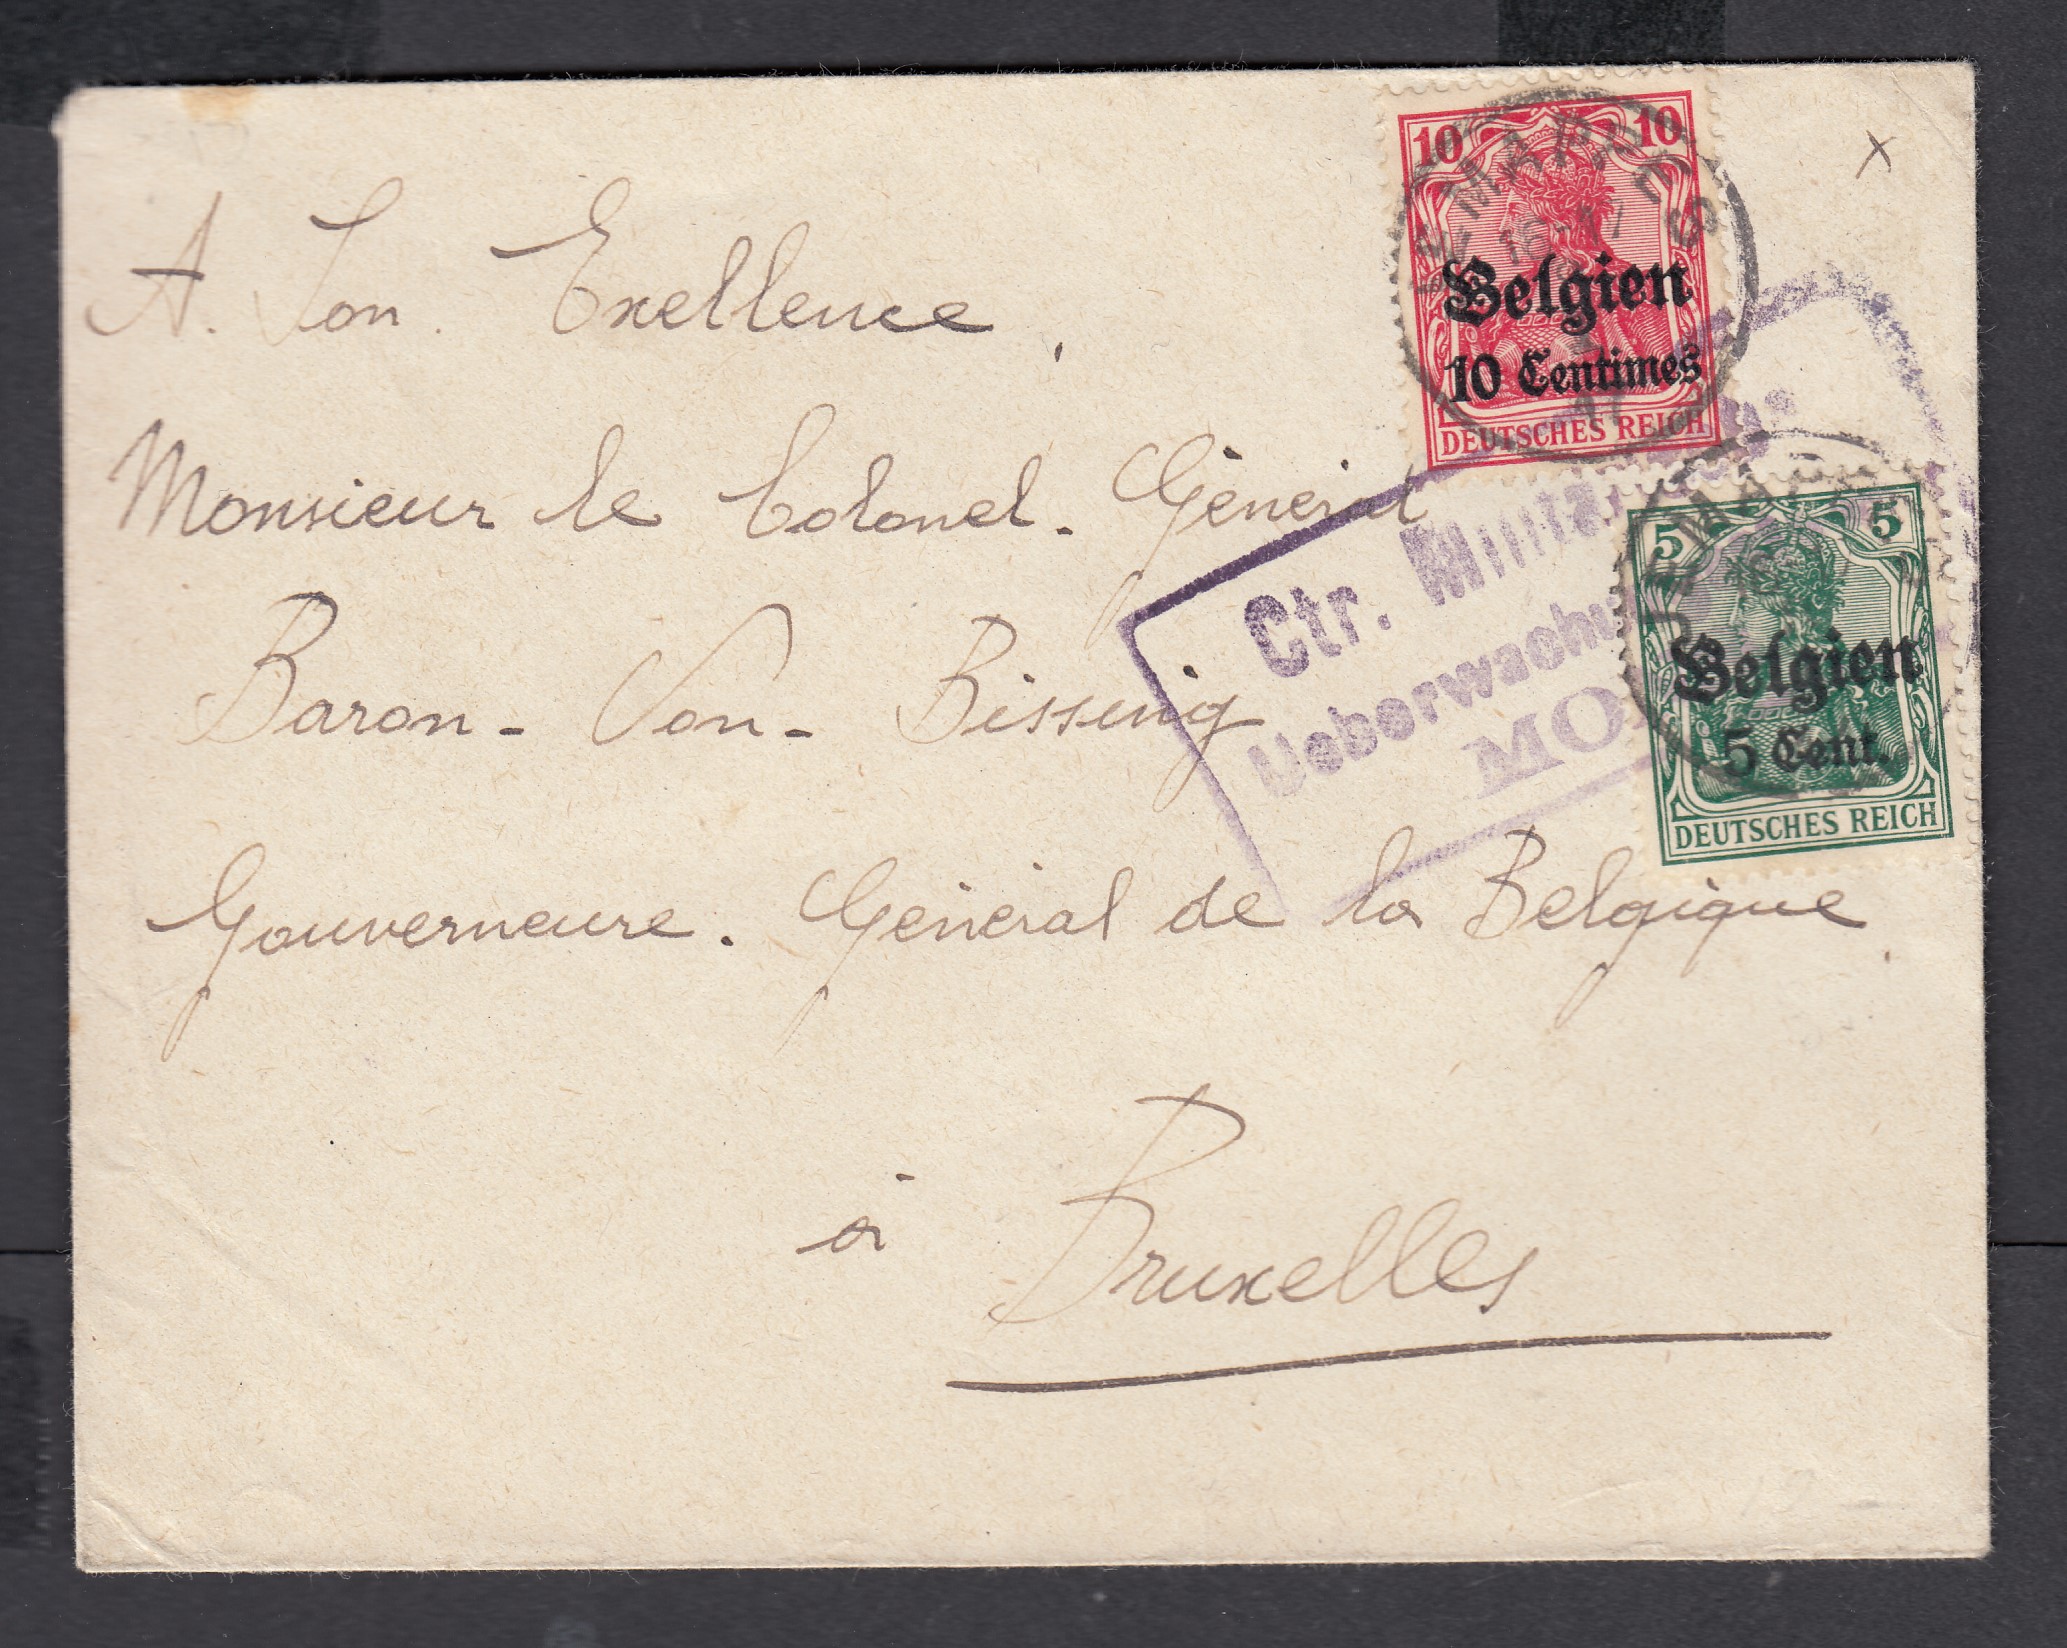 10 10
JEMAPPES
16-17
17
Belgien
10 Centimes
DEUTSCHES REICH
A. Son. Exellence,
Monsieur le Colonel. Général
Baron - Von - Bissing
Gouverneure. Général de la Belgique.
à Bruxelles
Ctr.
5 5
Belgien
5 Cent.
DEUTSCHES REICH
x